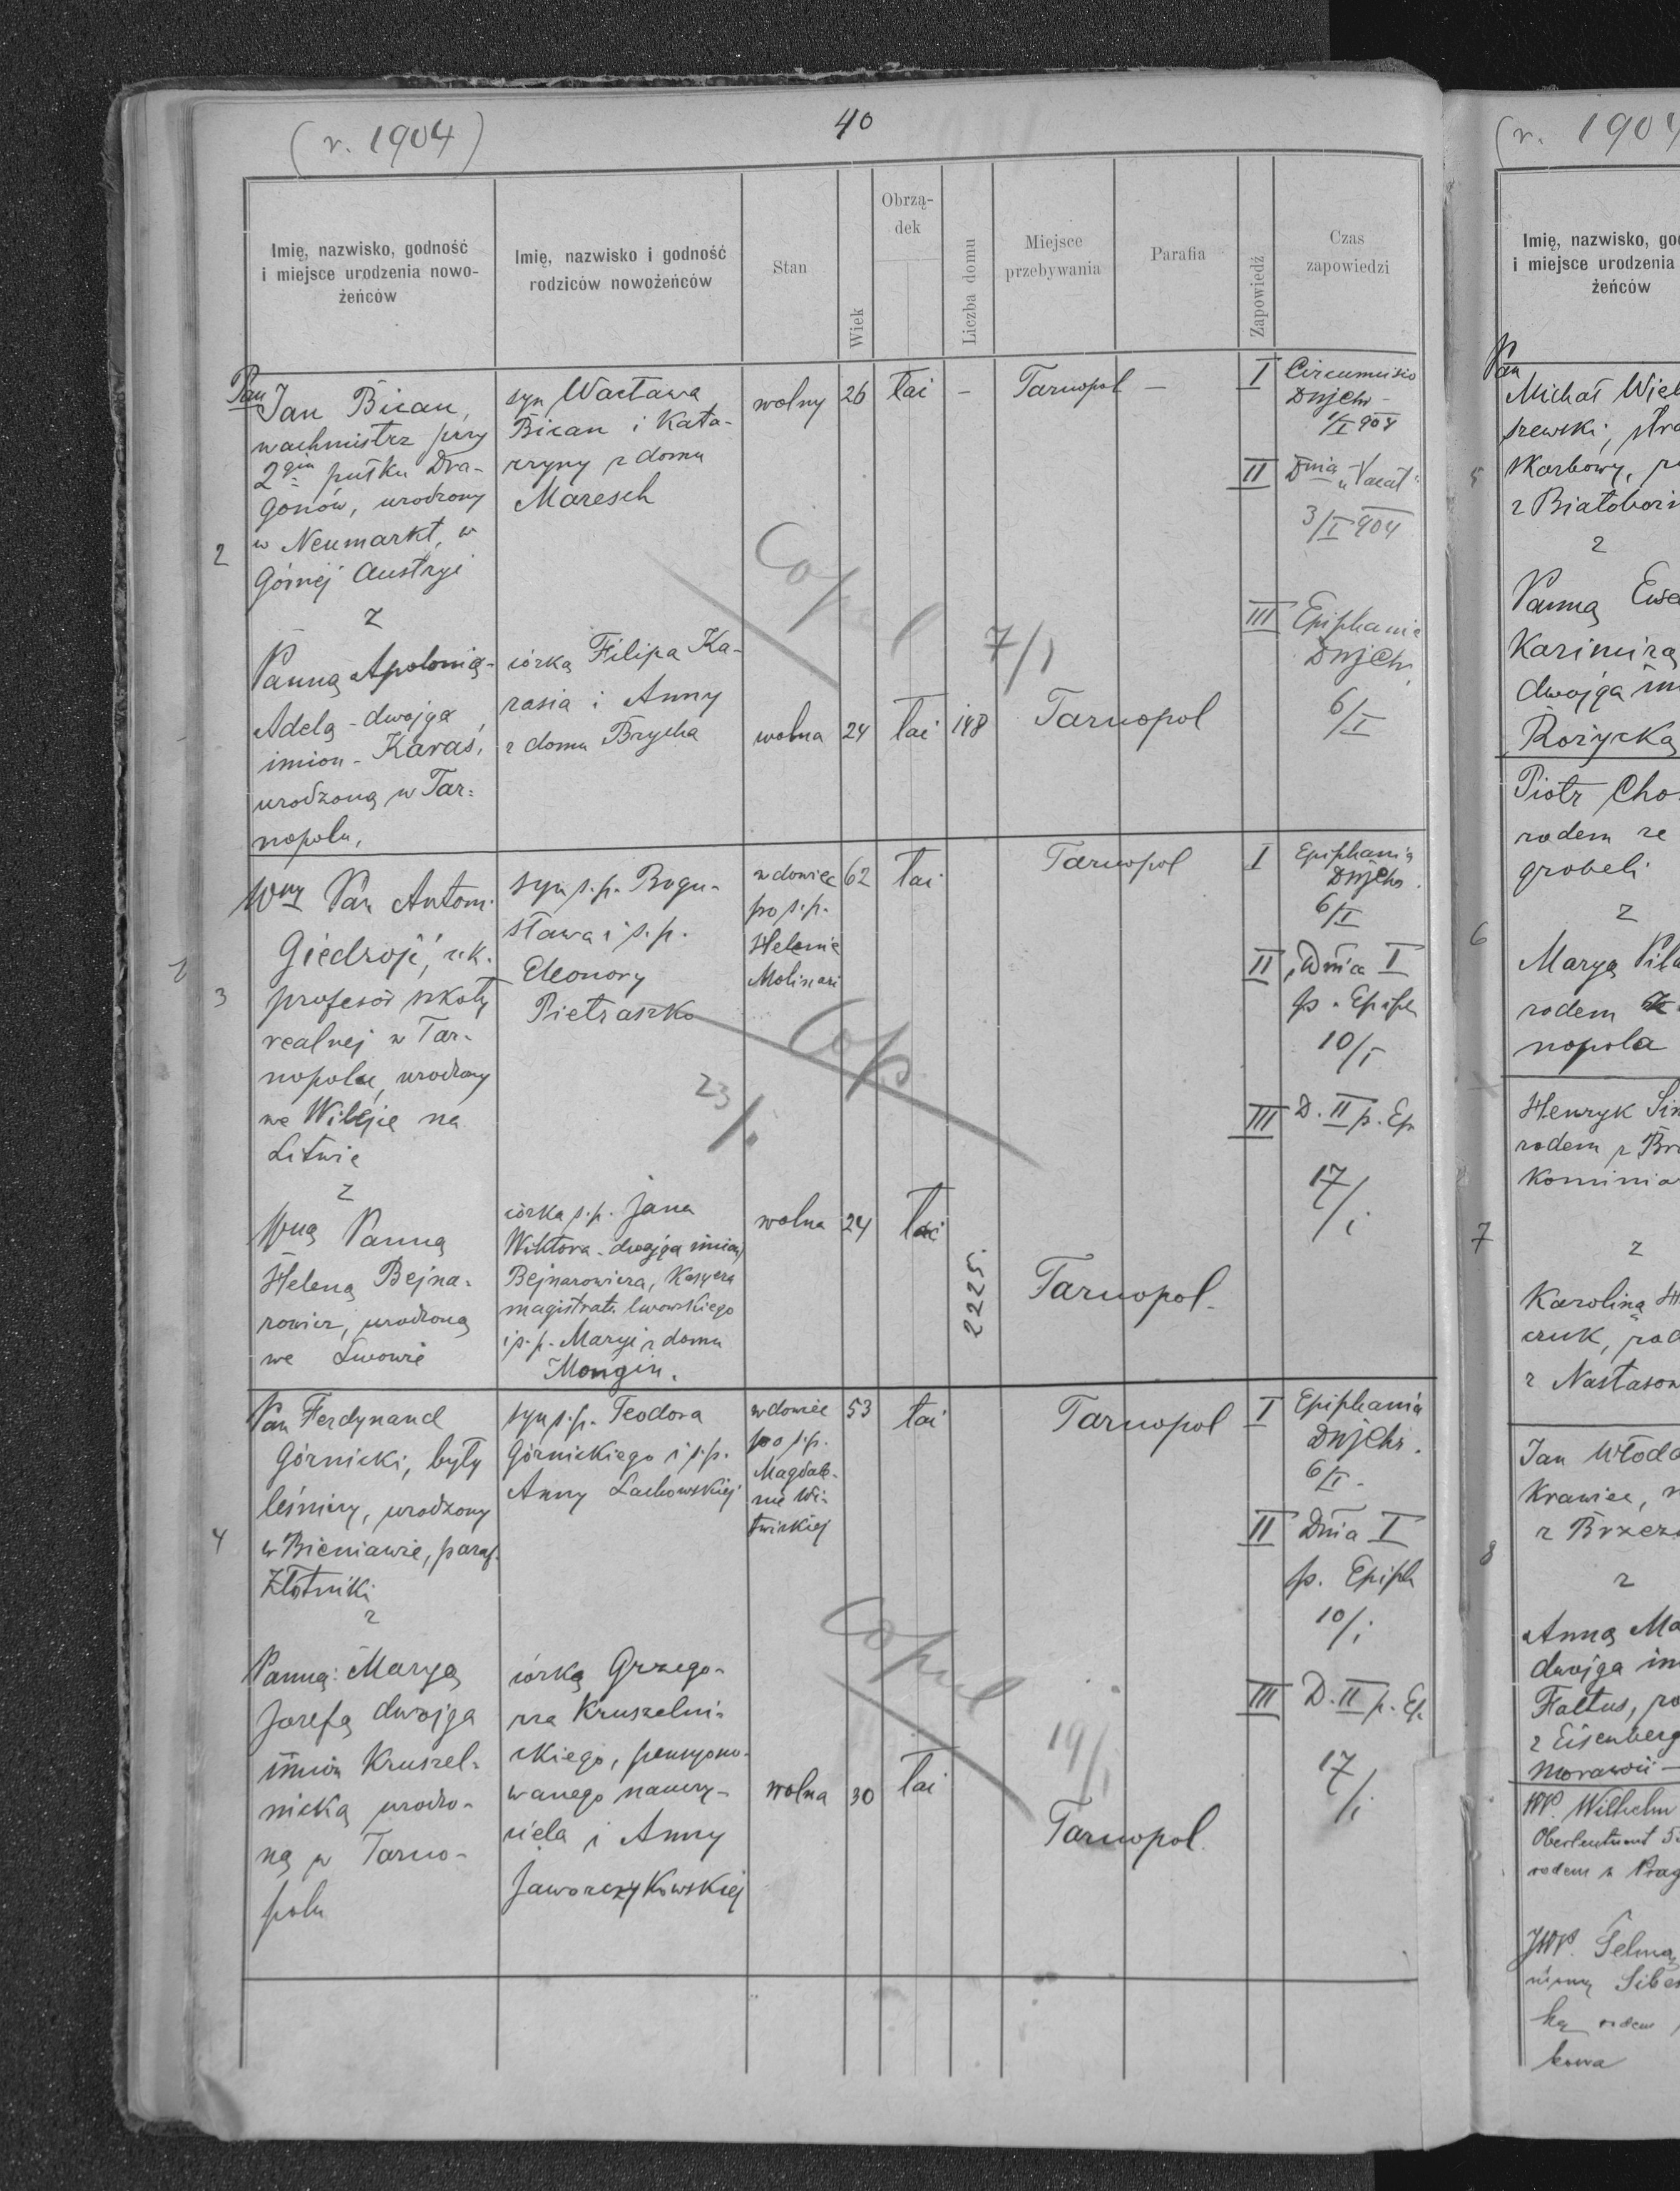 (r. 1904)
40
Imię, nazwisko, godność
i miejsce urodzenia nowo-
żeńców
Imię, nazwisko i godność
rodziców nowożeńców
Stan
Wiek
Obrzą-
dek
Liczba domu
Miejsce
przebywania
Parafia
Zapowiedź
Czas
zapowiedzi
2
Pan
Jan Bican,
wachmistrz przy
2gim pułku Dra-
gonów, urodzony
w Neumarkt, w
Górnej Austryi
z
Panną Apolonią-
Adelą - dwojga
imion - Karaś,
urodzoną w Tar=
nopolu,
syn Wacława
Bican i Kata-
rzyny z domu
Maresch
córką Filipa Ka-
rasia i Anny
z domu Brycha
wolny 26 łac - Tarnopol -
wolna 24 łac 148 Tarnopol
Copul
7/1
I Circumcisio
DnjChr -
1/I 904
II Dnia "Vacat"
3/I 904
III Epiphania
DnjChr,
6/I
3
Wny Pan Antoni
Giedrojć, ck.
profesor szkoły
realnej w Tar-
nopolu, urodzony
we Wilejce na
Litwie
z
Wną Panną
Heleną Bejna-
rowicz, urodzoną
we Lwowie
syn s.p. Bogu-
sława i s.p.
Eleonory
Pietraszko
córka s.p. Jana
Wiktora - dwojga imion,
Bejnarowicza, Kasyera
magistratu lwowskiego
i s.p. Maryi z domu
Mongin.
wdowiec
po s.p.
Helenie
Molinari
62 łac Tarnopol
wolna 24 łac
2225. Tarnopol -
Cop
23/1
I Epiphania
DnjChr.
6/I
II Dnia I
p. Epiph
10/I
III D. II p. Ep
17/1
4
Pan Ferdynand
Górnicki, były
leśniczy, urodzony
w Bieniawie, paraf.
Złotniki
z
Panną: Maryą
Józefą dwojga
imion Kruszel-
nicką urodzo-
ną w Tarno-
polu
syn s.p. Teodora
Górnickiego i s.p.
Anny Lachowskiej
córką Grzego-
rza Kruszelni-
ckiego, pensyono-
wanego nauczy-
ciela i Anny
Jaworczykowskiej
wdowiec
po s.p.
Magdale-
nie Wi-
twickiej
53 łac Tarnopol
wolna 30 łac
Tarnopol.
Copul
19/1
I Epiphania
DnjChr.
6/I -
II Dnia I
p. Epiph
10/1
III D. II p. Ep.
17/1
(r. 1904
Imię, nazwisko, go
i miejsce urodzenia
żeńców
5
Pan
Michał Wiel
szewski, stra
skarbowy,
z Białoboż
z
Panną
Kazimirą
dwojga im
Różycką
6
Piotr Cho
rodem ze
grobeli
z
Maryą Pila
rodem
nopola
7
Henryk
rodem z
kominia
z
Karoliną
czuk, rod
z Nastasow
8
Jan Włoda
Krawiec, r
z Brzeż
z
Anną Ma
dwojga im
Faltus, ro
z Eisenberg
Morawii -
WP. Wilhelm
Oberleutnant
rodem z Prag
JWP. Selmą